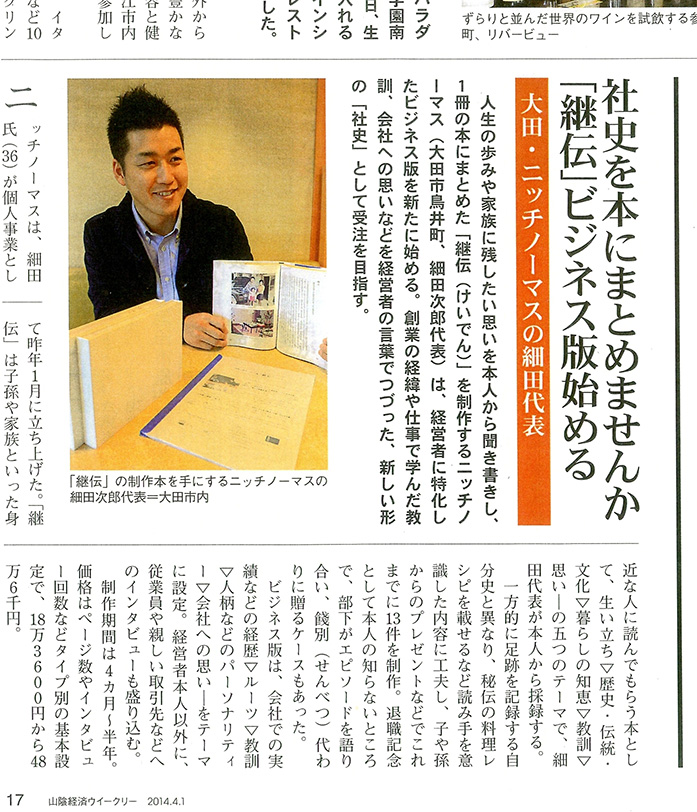 ずらりと並んだ世界のワインを試飲する参
町、リバービュー
パラダ
学園南
日、生
入れる
インシ
レスト
した。
外から
豊かな
容と健
江市内
参加し
イタ
など10
クリン
社史を本にまとめませんか
「継伝」ビジネス版始める
大田・ニッチノーマスの細田代表
人生の歩みや家族に残したい思いを本人から聞き書きし、
1冊の本にまとめた「継伝（けいでん）」を制作するニッチノ
ーマス（大田市鳥井町、細田次郎代表）は、経営者に特化し
たビジネス版を新たに始める。創業の経緯や仕事で学んだ教
訓、会社への思いなどを経営者の言葉でつづった、新しい形
の「社史」として受注を目指す。
「継伝」の制作本を手にするニッチノーマスの
細田次郎代表＝大田市内
ニ
ッチノーマスは、細田
氏（36）が個人事業とし
て昨年1月に立ち上げた。「継
伝」は子孫や家族といった身
近な人に読んでもらう本とし
て、生い立ち▽歴史・伝統・
文化▽暮らしの知恵▽教訓▽
思い―の五つのテーマで、細
田代表が本人から採録する。
一方的に足跡を記録する自
分史と異なり、秘伝の料理レ
シピを載せるなど読み手を意
識した内容に工夫し、子や孫
からのプレゼントなどでこれ
までに13件を制作。退職記念
として本人の知らないところ
で、部下がエピソードを語り
合い、餞別（せんべつ）代わ
りに贈るケースもあった。
ビジネス版は、会社での実
績などの経歴▽ルーツ▽教訓
▽人柄などのパーソナリティ
ー▽会社への思い―をテーマ
に設定。経営者本人以外に、
従業員や親しい取引先などへ
のインタビューも盛り込む。
制作期間は4カ月～半年。
価格はページ数やインタビュ
ー回数などタイプ別の基本設
定で、18万3600円から48
万6千円。
17 山陰経済ウイークリー 2014.4.1